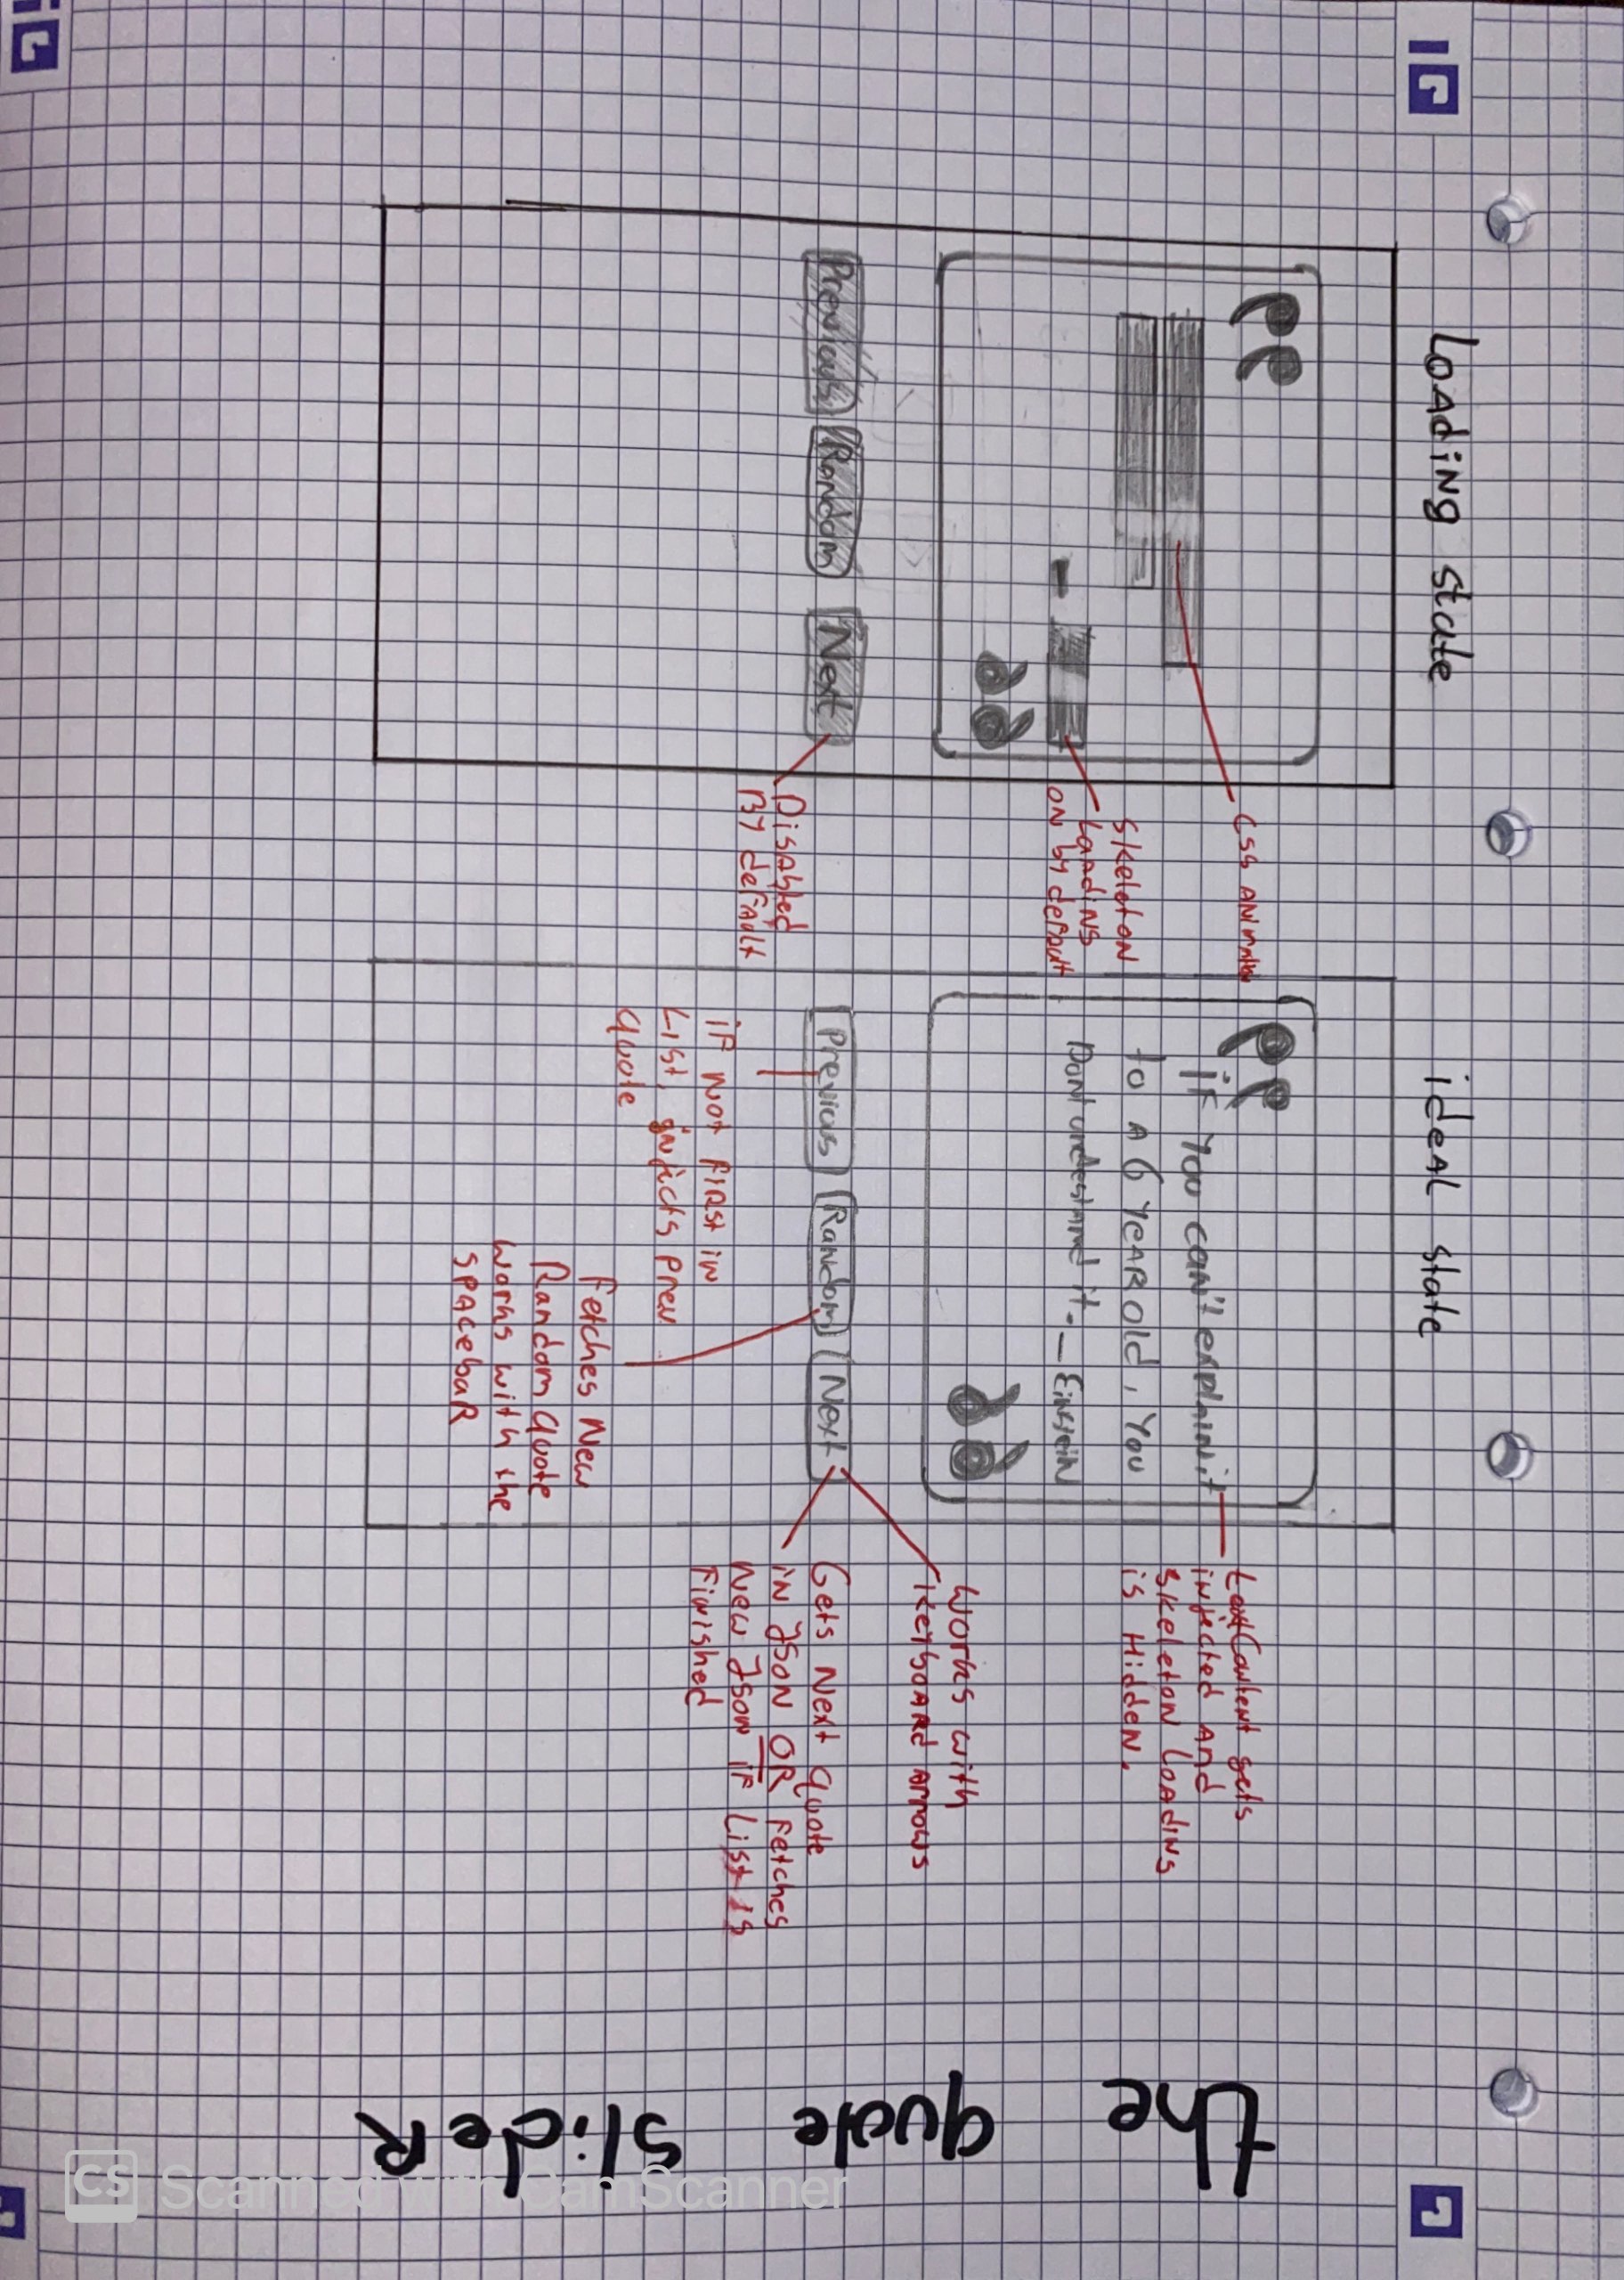 Loading state
CSS ANimation
Skeleton
Loading
on by default
Previous Random Next
Disabled
By default
ideal state
iF You can't explain it
to A 6 YEAR old, You
Dont understand it. — Einstein
textContent gets
injected and
Skeleton Loading
is Hidden.
Works with
Keyboard Arrows
Previous Random Next
Gets Next Quote
iN JSON OR Fetches
New JSON IF List is
Finished
iF Not First in
List, injects prev
Quote
Fetches New
Random Quote
works with the
Spacebar
the quote slider
CS Scanned with CamScanner